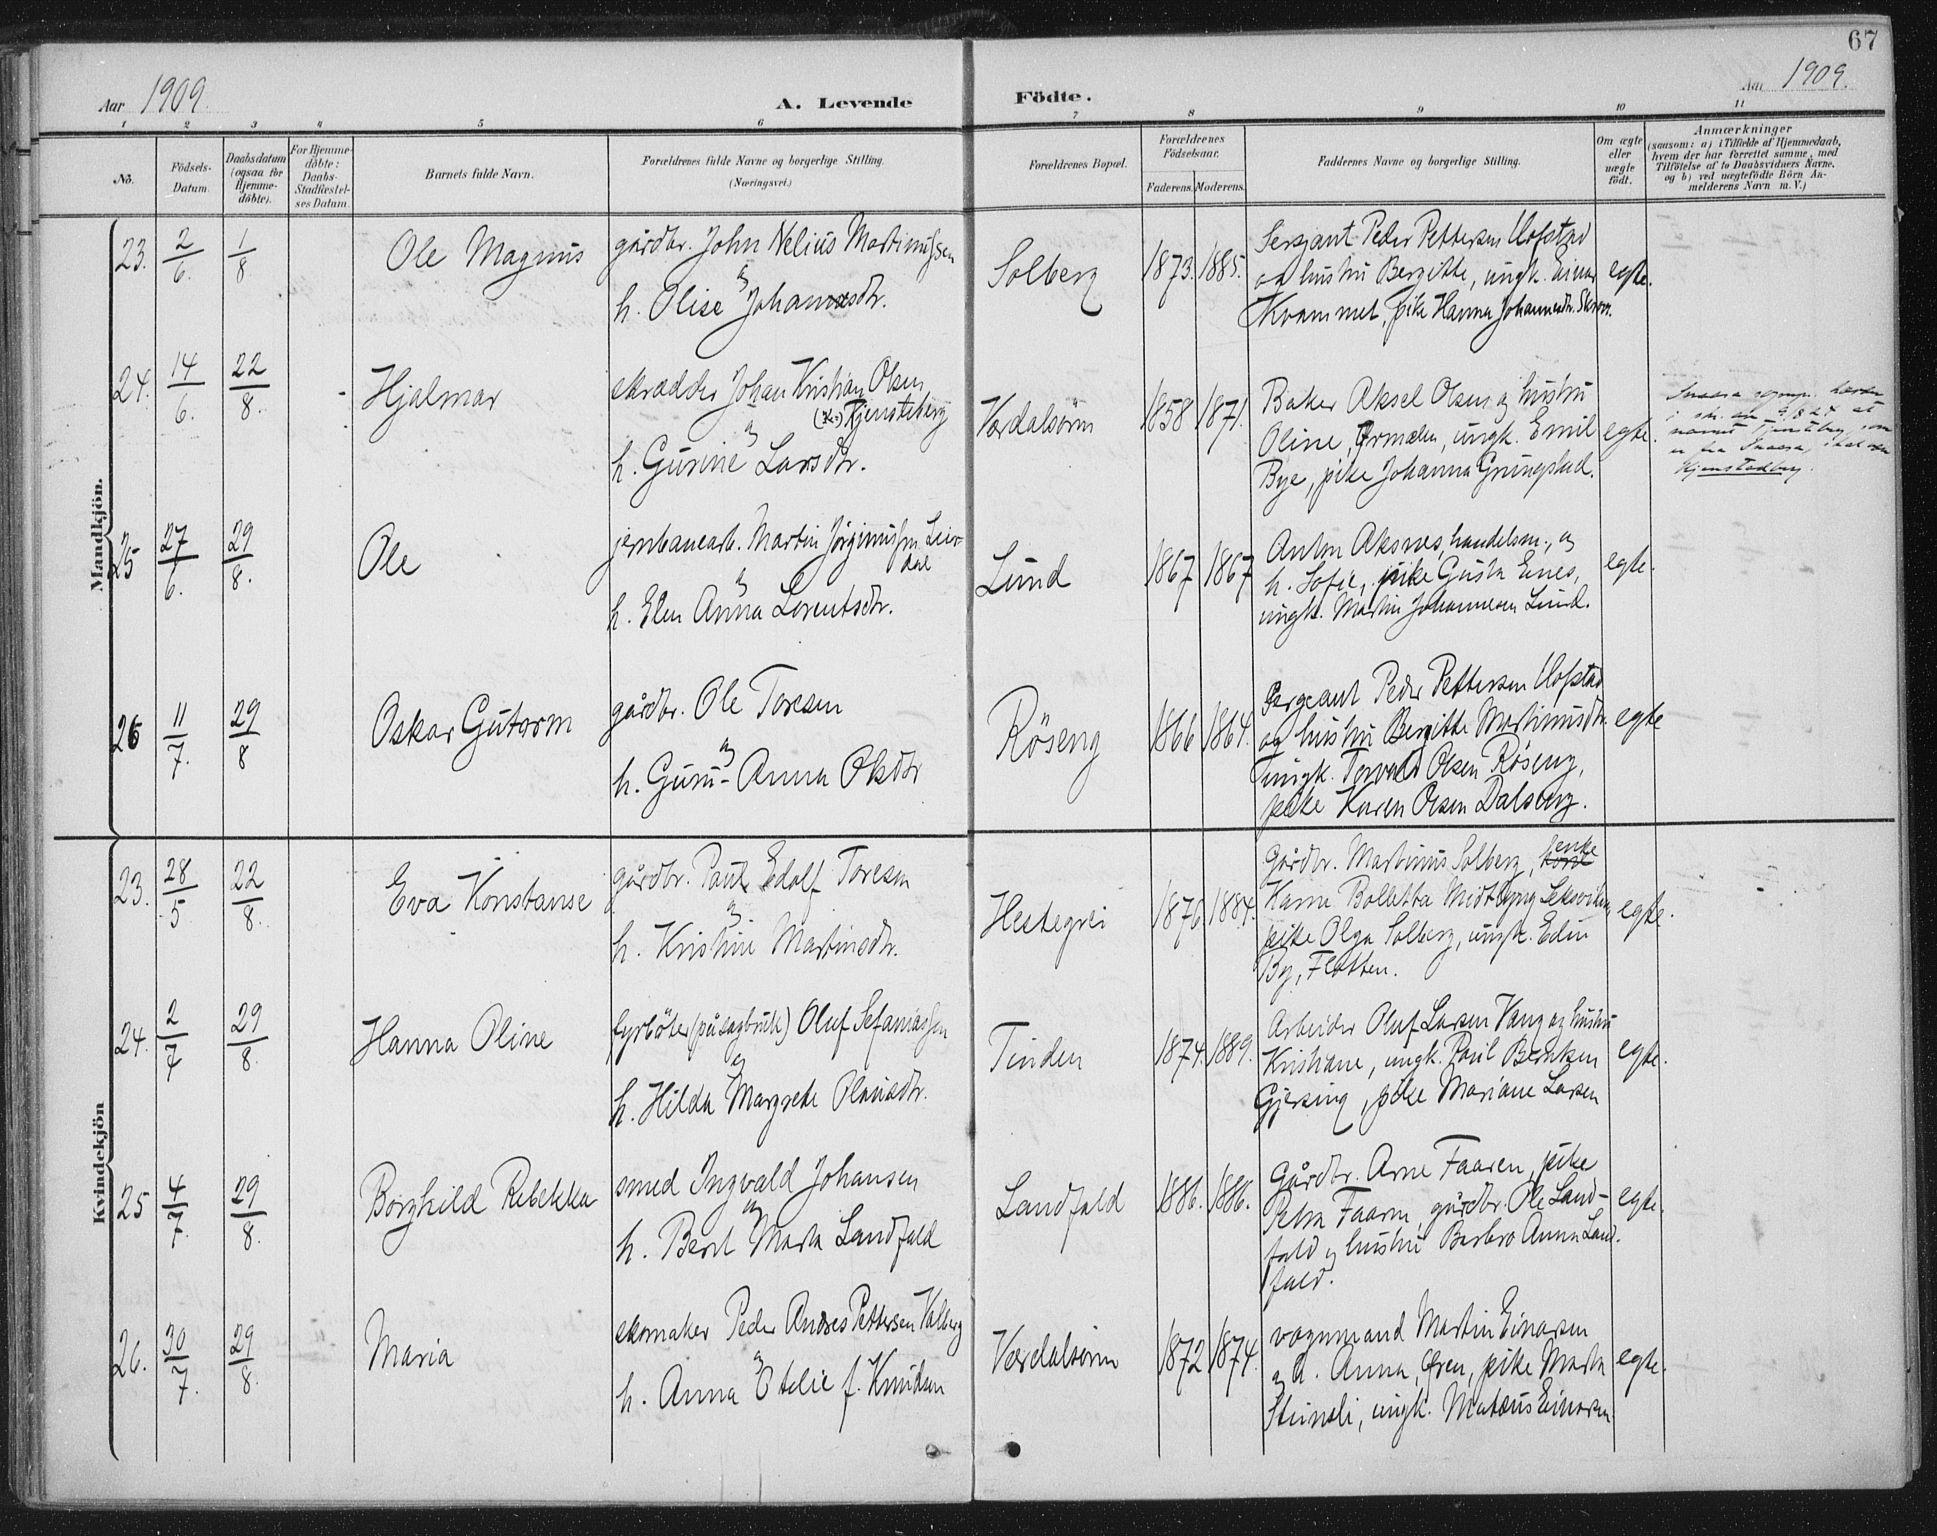 67
Aar 1909. A. Levende Födte. Aar 1909.
1 2 3 4 5 6 7 8 9 10 11
No.
Födsels-
Datum.
Daabsdatum
(ogsaa for
Hjemme-
döbte).
For Hjemme-
döbte:
Daabs-
Stadfæstel-
ses Datum.
Barnets fulde Navn.
Forældrenes fulde Navne og borgerlige Stilling.
(Næringsvei.)
Forældrenes Bopæl.
Forældrenes
Födselsaar.
Faderens. Moderens.
Faddernes Navne og borgerlige Stilling.
Om ægte
eller
uægte
födt.
Anmærkninger
(saasom: a) i Tilfælde af Hjemmedaab,
hvem der har forrettet samme, med
Tilföielse af to Daabsvidners Navne,
og b) ved uægtefödte Börn An-
melderens Navn m. V.)
Mandkjön.
23. 2/6. 1/8 Ole Magnus
gårdbr. John Nelius Martinussen
og
h. Olise Johannesdtr.
Solberg 1873. 1885.
Sersjant Peder Pettersen Hofstad
og hustru Bergitte, ungk. Einar
Kvammet, pike Hanna Johannesdtr.
egte.
24. 14/6. 22/8. Hjalmar
skrædder Johan Kristian Olsen
Tjensteberg
og
h. Gurine Larsdtr.
Værdalsörn 1858 1871.
Baker Aksel Olsen og hustru
Oline, Örmælen, ungk. Emil
Bye, pike Johanna Grungstad.
egte.
er fra Snaasa, skal være
Kjenstadberg.
25 27/6. 29/8. Ole
jernbanearb. Martin Jörginussen Leir-
dal
og
h. Elen Anna Lorentsdtr.
Lund 1867 1867
Anton Aksnes, handelsm., og
h. Sofie, pike Gusta Eines,
ungk. Martin Johannesen Lund.
egte.
26 11/7. 29/8 Oskar Gutorm
gårdbr. Ole Toresen
og
h. Guru-Anna Olsdtr
Röseng 1866 1864.
Sergeant Peder Pettersen Hofstad
og hustru Bergitte Martinusdtr.
ungk. Torvald Olsen Röseng,
pike Karen Olsen Dalseng.
egte
Kvindekjön
23. 28/5 22/8. Eva Konstanse
gårdbr. Paul Edolf Toresen
og
h. Kristine Martinsdtr.
Hestegrei 1876 1884.
enke
Gårdbr. Martinus Solberg,
Karne Bolletta Midtbyng Leksviken
pike Olga Solberg, ungk. Edin
By, Flotten.
egte.
24. 2/7 29/8. Hanna Oline
fyrböter (på sagbruk) Oluf Sefaniassen
og
h. Hilda Margrete Olausdtr.
Tinden 1874. 1889.
Arbeider Oluf Larsen Vang og hustru
Kristiane, ungk. Paul Berntsen
Gjersing, pike Mariane Larsen
egte.
25 4/7. 29/8. Borghild Rebekka
smed Ingvald Johansen
og
h. Berit Marta Landfald
Landfald 1886. 1886.
Gårdbr. Arne Faaren, pike
Petra Faaren, gårdbr. Ole Land-
fald og hustru Barbro Anna Land-
fald.
egte.
26. 30/7. 29/8. Maria
skomaker Peder Andres Pettersen Valberg
og
h. Anna Otelie f. Knudsen
Værdalsören 1872 1874.
vognmand Martin Einarsen
og h. Anna, Ören, pike Marta
Steinsli, ungk. Matæus Einarsen
egte.